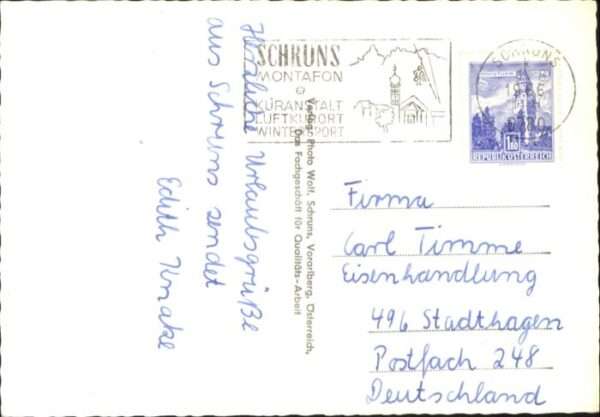 Herzliche Urlaubsgrüße
aus Schruns sendet
Edith
SCHRUNS
MONTAFON
KURANSTALT
LUFTKURORT
WINTERSPORT
SCHRUNS
6780
1.80
REPUBLIK ÖSTERREICH
Verlag: Photo Wolf, Schruns, Vorarlberg, Österreich,
Das Fachgeschäft für Qualitäts-Arbeit
Firma
Carl Timme
Eisenhandlung
496 Stadthagen
Postfach 248
Deutschland